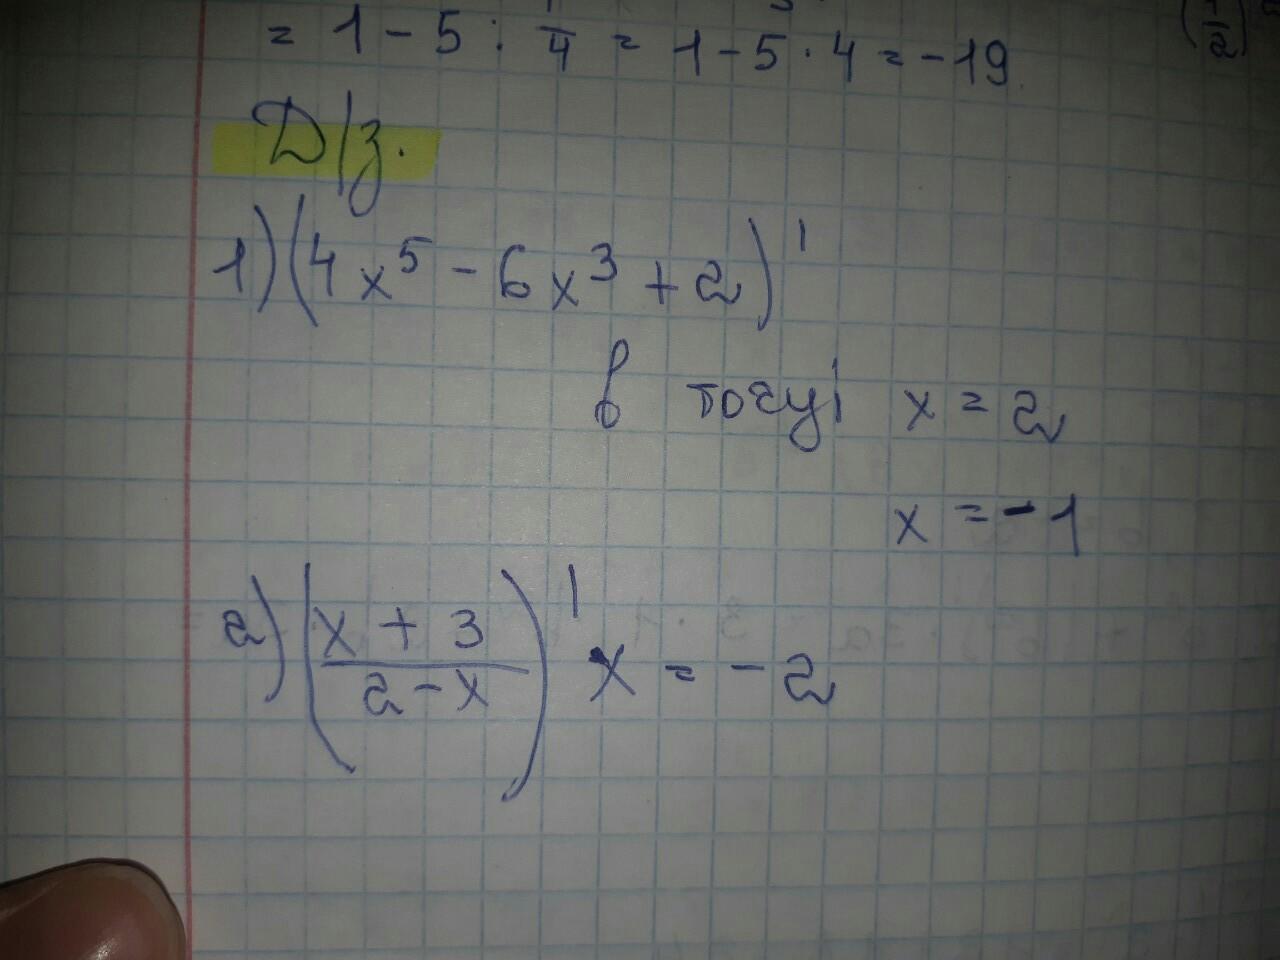 = 1 - 5 : 1/4 = 1 - 5 · 4 = -19
Д/з.
1) (4x⁵ - 6x³ + 2)'
в точці x = 2
x = -1
2) ((x + 3)/(2 - x))' x = -2